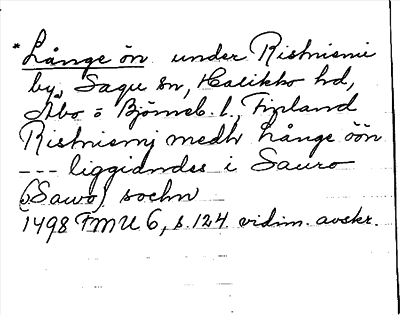 * Långe ön under Ristniemi
by, Sagu sn, Halikko hd,
Åbo o Björneb. l., Finland
Ristniemj medh Långe öön
--- liggiandes i Sauro
(Sawo) sochn
1498 FMU 6, s. 124. vidim. avskr.